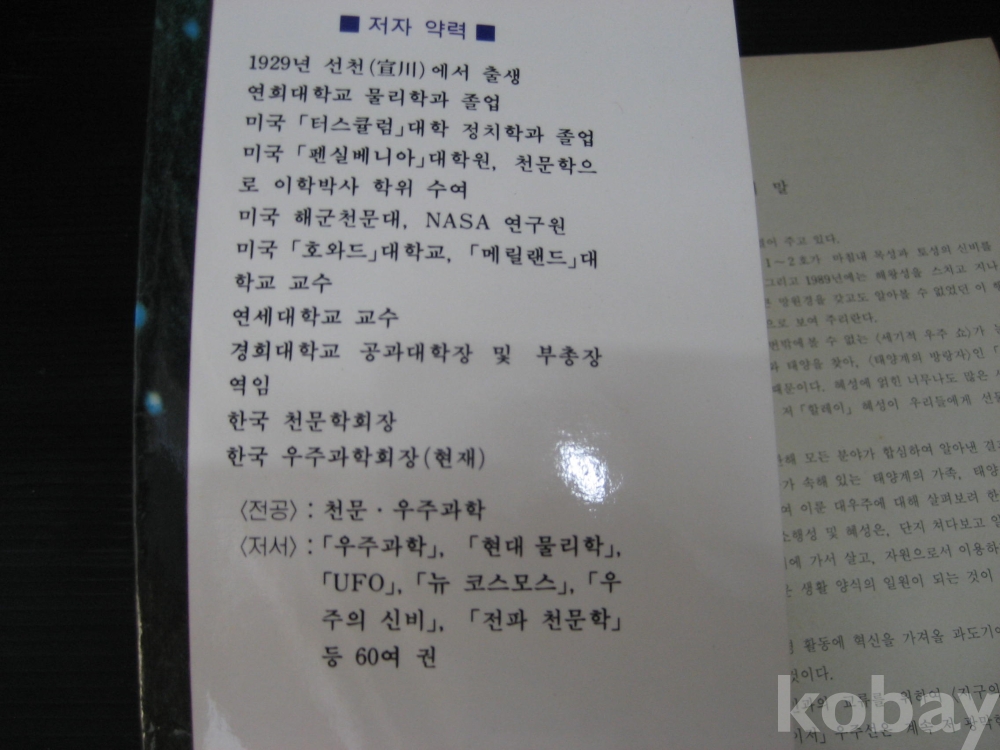 ■ 저자 약력 ■
1929년 선천(宣川)에서 출생
연희대학교 물리학과 졸업
미국 「터스큘럼」대학 정치학과 졸업
미국 「펜실베니아」대학원, 천문학으
로 이학박사 학위 수여
미국 해군천문대, NASA 연구원
미국 「호와드」대학교, 「메릴랜드」대
학교 교수
연세대학교 교수
경희대학교 공과대학장 및 부총장
역임
한국 천문학회장
한국 우주과학회장(현재)
〈전공〉: 천문·우주과학
〈저서〉: 「우주과학」, 「현대 물리학」,
「UFO」, 「뉴 코스모스」, 「우
주의 신비」, 「전파 천문학」
등 60여 권
말
주고 있다.
1～2호가 마침내 목성과 토성의 신비를
그리고 1989년에는 해왕성을 스치고 지나
망원경을 갖고도 알아볼 수 없었던 이
으로 보여 주리란다.
번밖에 볼 수 없는 〈세기적 우주 쇼〉가
태양을 찾아, 〈태양계의 방랑자〉인 「
때문이다. 혜성에 얽힌 너무나도 많은
저 「할레이」 혜성이 우리들에게 선
모든 분야가 합심하여 알아낸 결
가 속해 있는 태양계의 가족, 태양
여 이룬 대우주에 대해 살펴보려 한
소행성 및 혜성은, 단지 쳐다보고
에 가서 살고, 자원으로서 이용하
생활 양식의 일원이 되는 것이
활동에 혁신을 가져올 과도기
것이다.
교류를 위하여 〈지구의
우주선은 계속 저 광막한
kobay